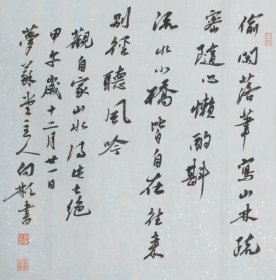 偷閒落筆寫山林疏
密隨心懶酌斟
流水小橋皆自在往來
別徑聽風吟
觀自家山水得此七絕
甲午歲十二月廿一日
夢蘇堂主人向彬書